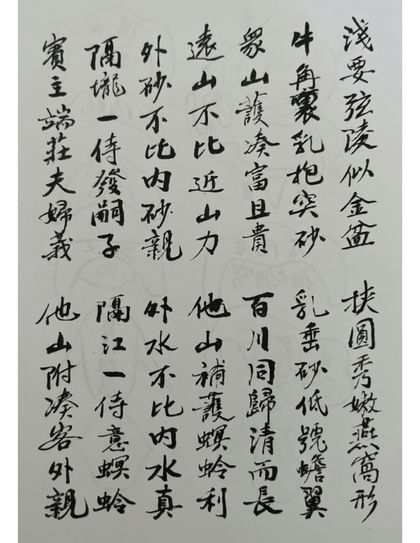 淺要弦陵似金盆 挾圓秀嫩燕窩形
牛角裏乳抱突砂 乳垂砂低號蟾翼
眾山護湊富且貴 百川同歸清而長
遠山不比近山力 他山補護螟蛉利
外砂不比內砂親 外水不比內水真
隔壠一侍發嗣子 隔江一侍意螟蛉
賓主端莊夫婦義 他山附湊客外親